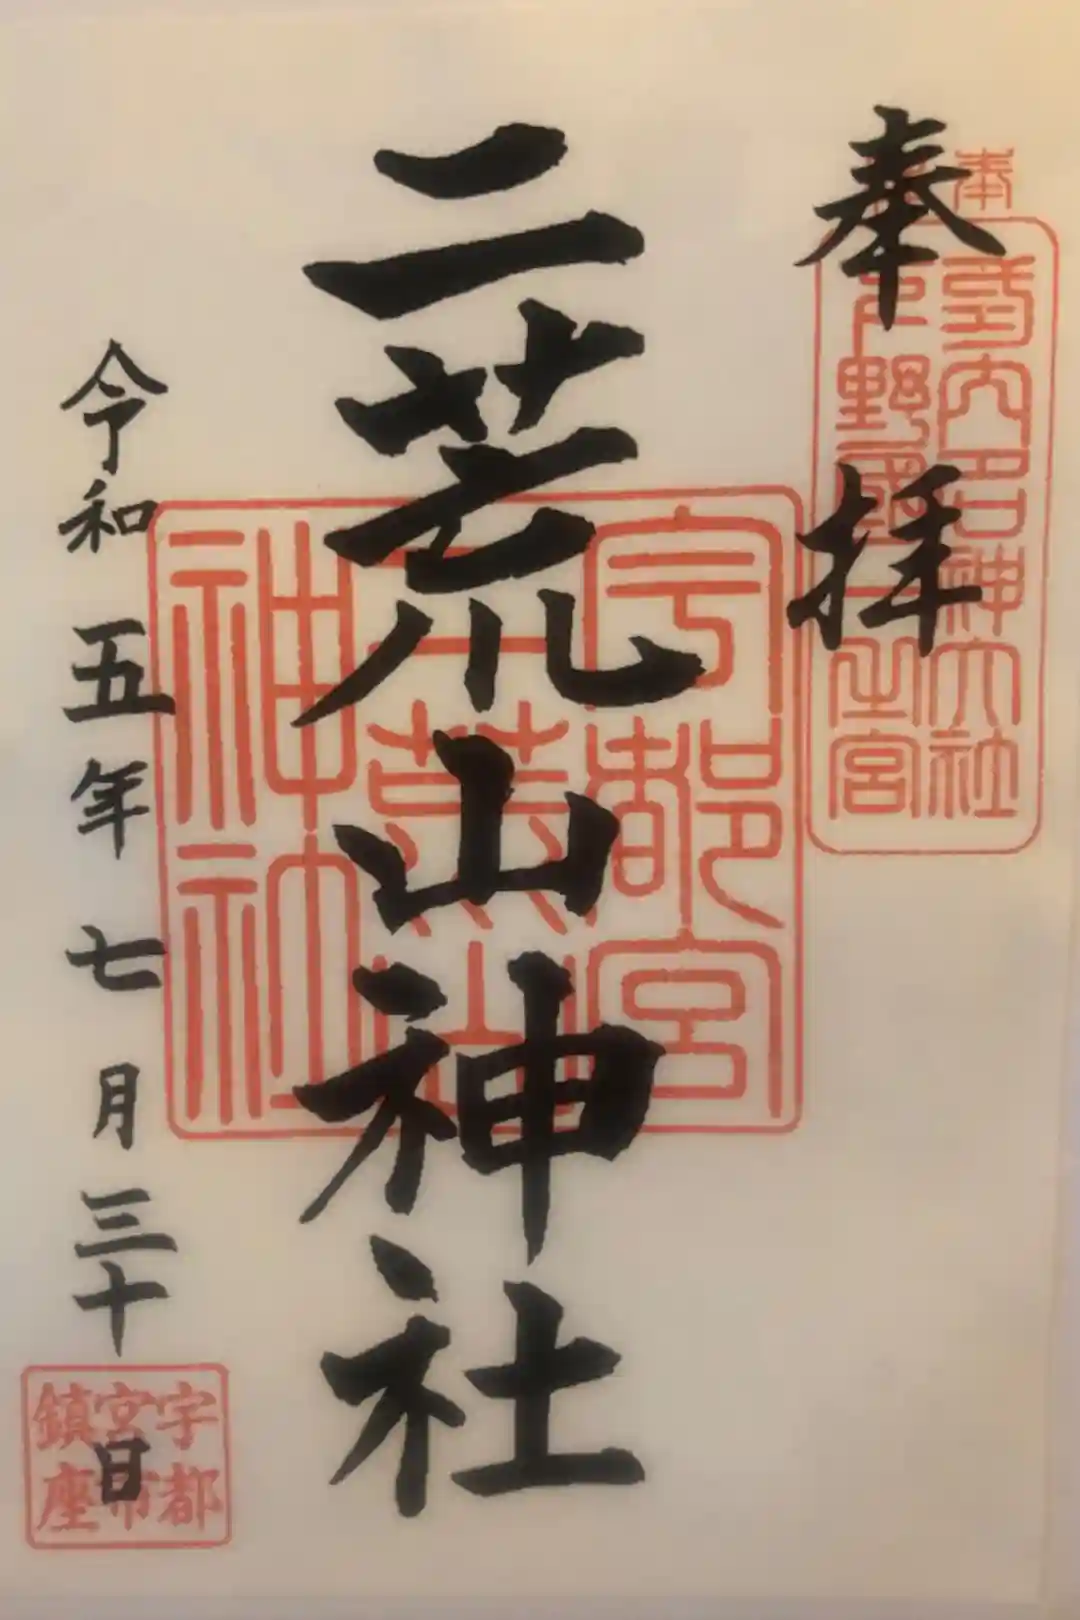 奉拝
式内名神大社
下野國一之宮
二荒山神社
宇都宮
二荒山
神社
令和五年七月三十日
宇都
宮市
鎮座